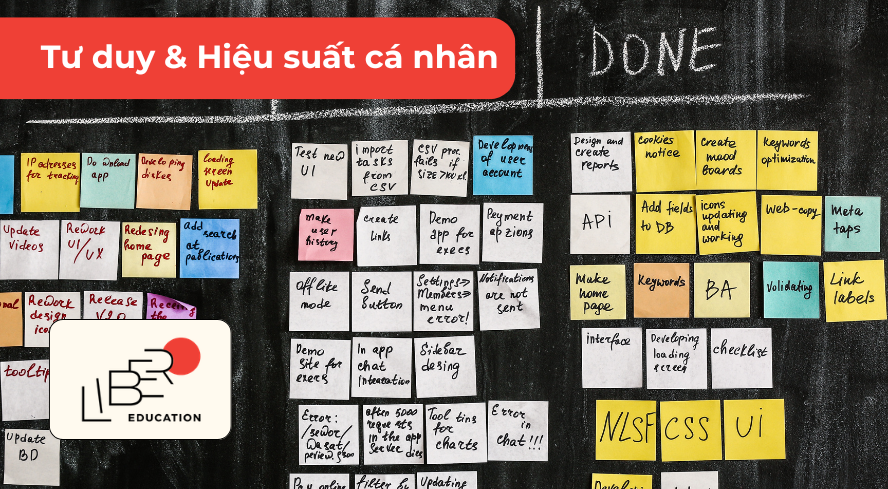 Tư duy & Hiệu suất cá nhân
DONE
IP adresses
for tracking
Download
app
Developing
dishes
loading
screen
update
Update
videos
Rework
UI/UX
Redesing
home
page
add
search
at
publication
Rework
design
Release
tooltip
Update
BD
LIBERO
EDUCATION
Test new
UI
import
tasks
from
CSV
CSV proc.
fails if
Development
of user
account
make
user
history
create
links
Demo
app for
execs
Peyment
apzions
Offlite
mode
Send
button
Settings=>
Members=>
menu
error!
Notifications
are not
sent
Demo
site for
execs
In app
chat
Sidebar
desing
Error:
after 5000
requests
in the app
server dies
Tool tins
for
charts
Error
in
chat!!!
filter by
Updating
Design and
create
reports
cookies
notice
create
mood
boards
Keywords
optimization
API
Add fields
to DB
icons
updating
and
working
Web-copy
Meta
taps
Make
home
page
Keywords
BA
Validating
Link
labels
interface
Developing
loading
screen
checklist
NLSF
CSS
Ui